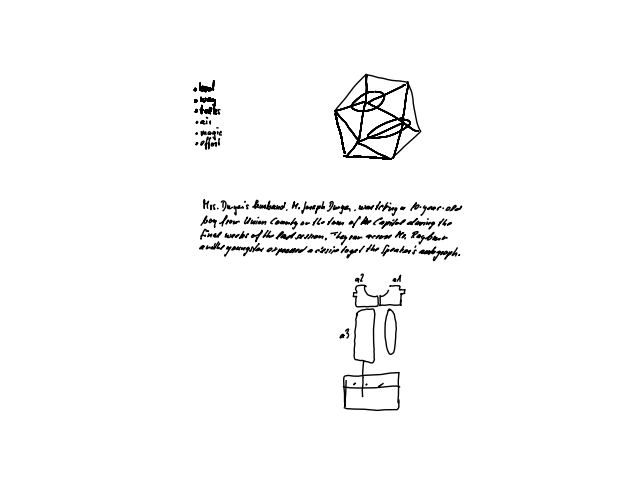 • land
• way
• talks
• air
• magic
• effort
Mrs. Duryea's husband, M. Joseph Duryea, was taking a 10-year-old
boy from Union County on the tour of the Capitol during the
final weeks of the last session. They ran across Mr. Rayburn
and the youngster expressed a desire to get the Speaker's autograph.
a2 a1
a3